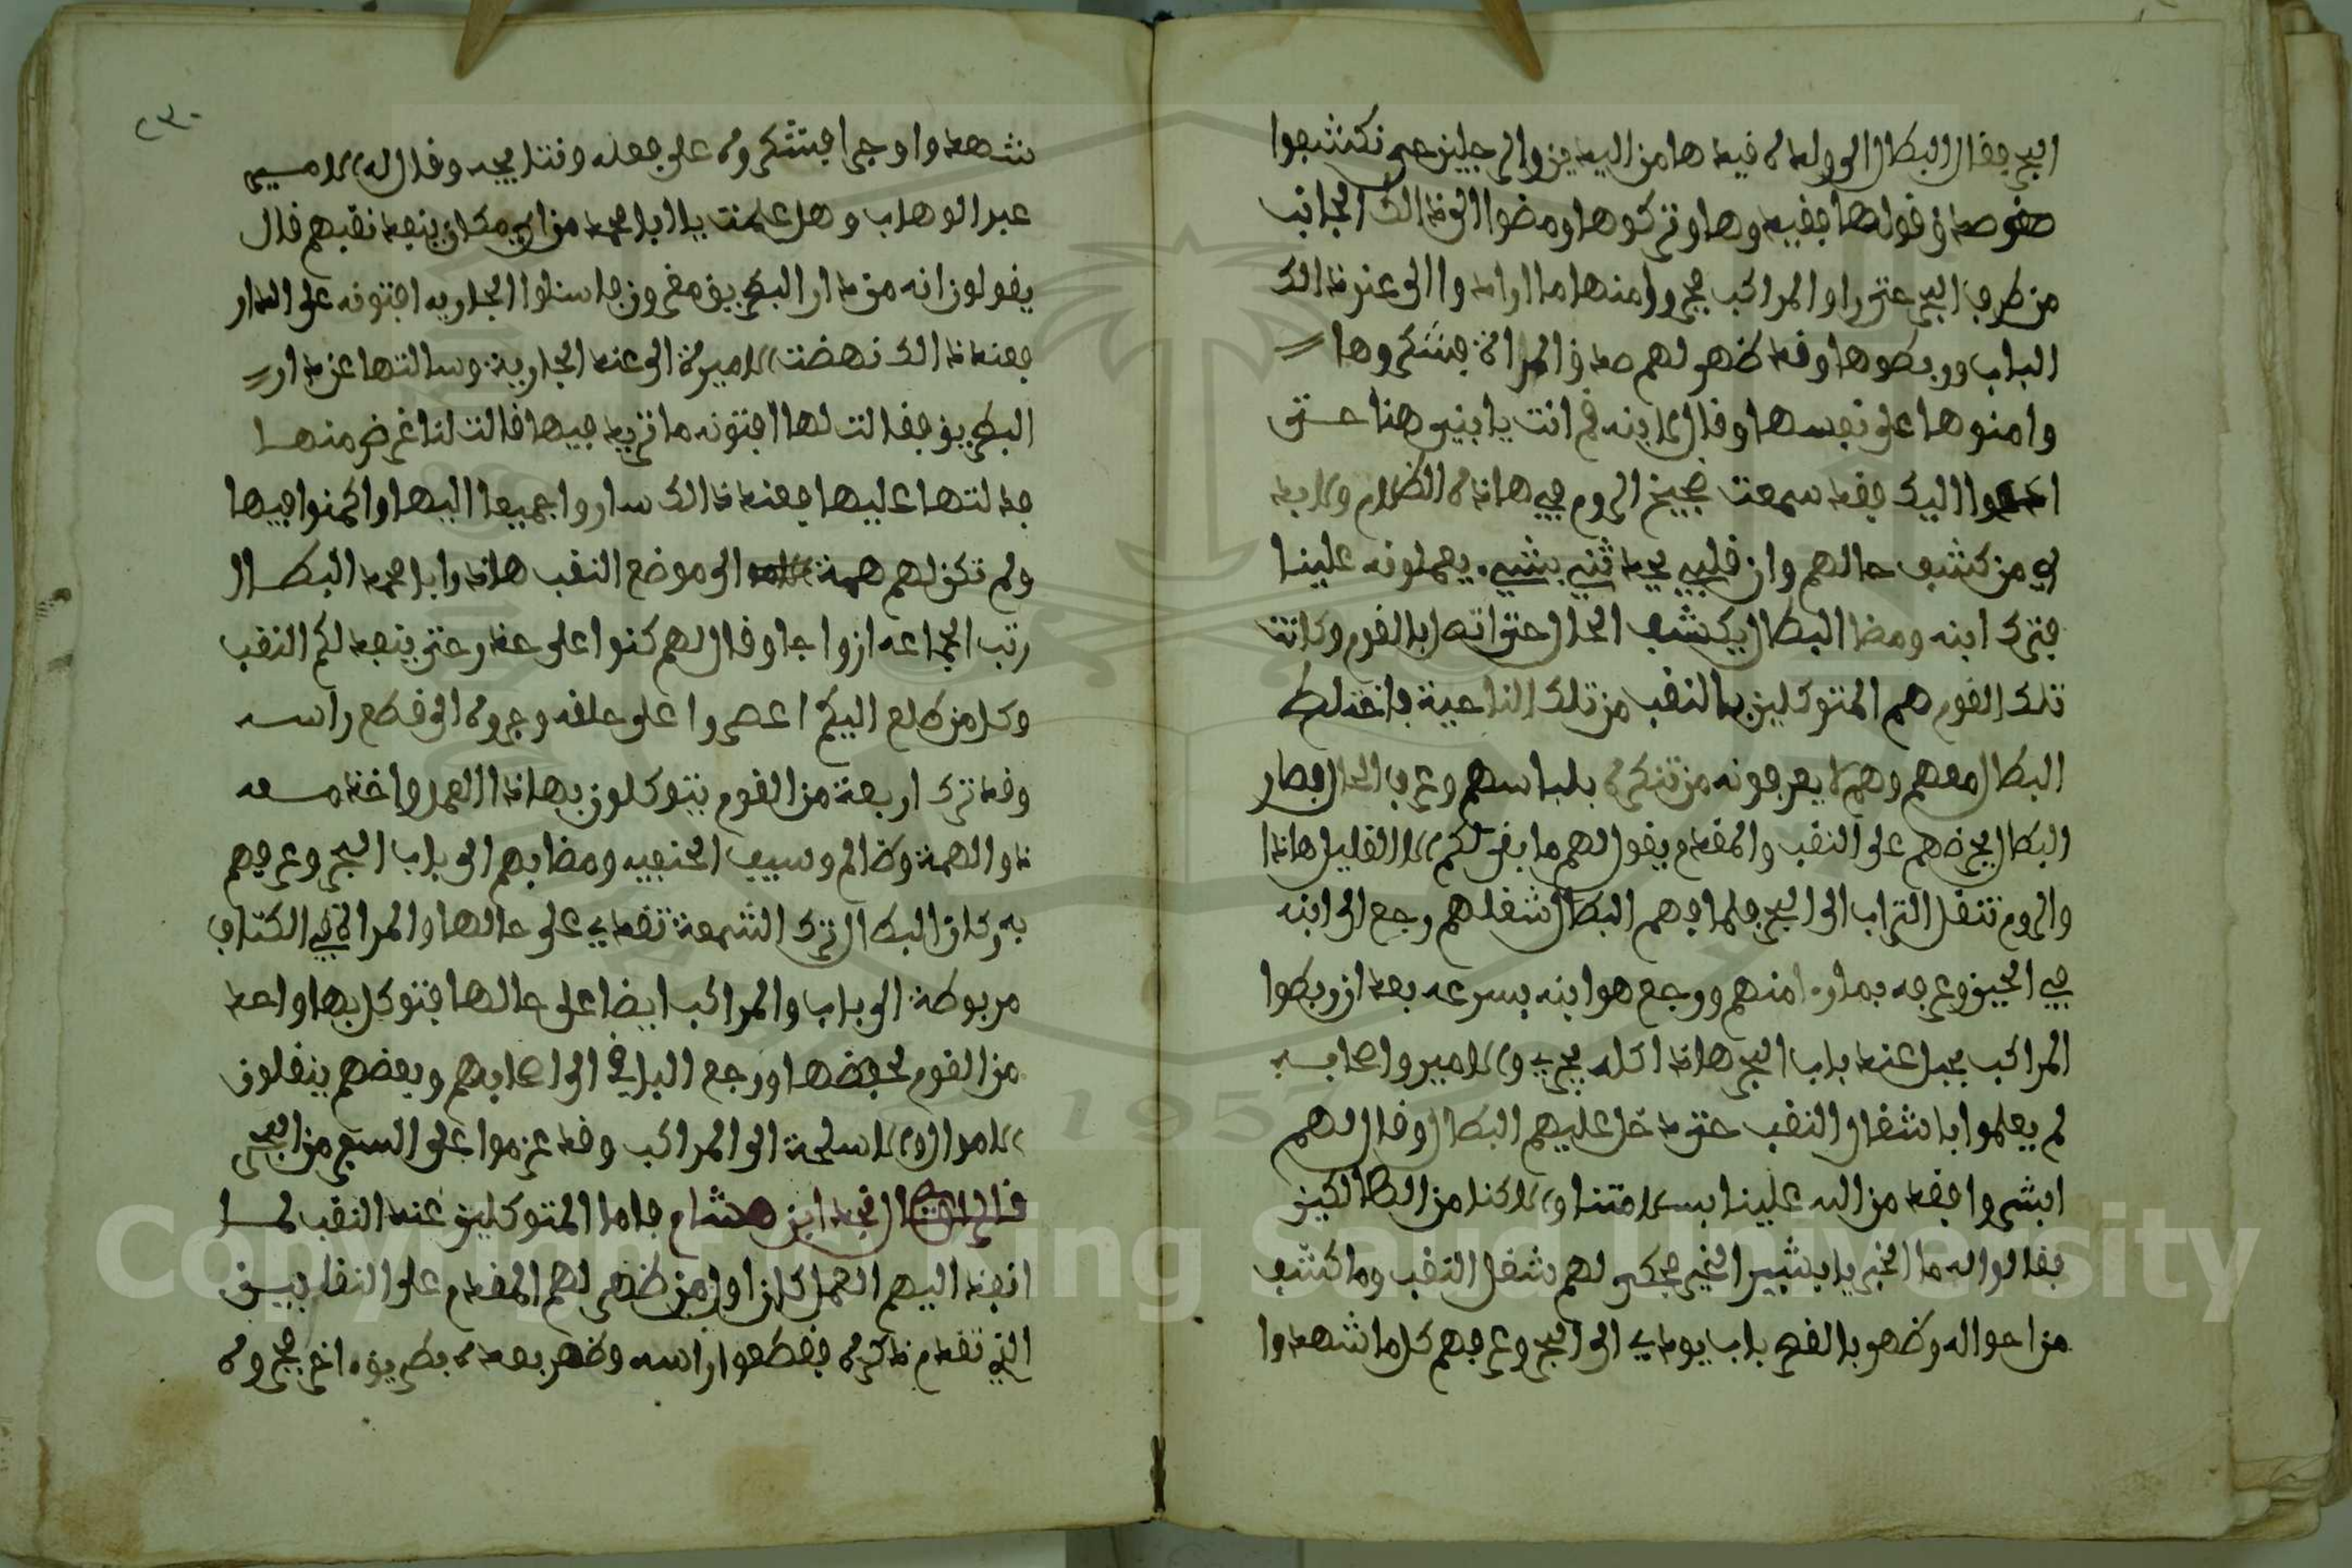 البحر فقال البطال الى ولده فيد هامن اليدين والرجلين حتى نكشفوا
من طرف البحر حتى راوا المراكب فجروا منها ما ارادوا الى عند ذالك
الباب وربطوها وقد ظهر لهم صدق المراة فشكروها
وامنوها على نفسها وقال لابنه قم انت يا بني هنا حتى
اليك فقد سمعت ضجيج الروم في هاذه الظلام ولابد
لي من كشف حالهم وان قلبي يحدثني بشيء يعملونه علينا
فترك ابنه ومضا البطال يكشف الحال حتى اتصل بالقوم وكانت
تلك القوم هم المتوكلين بالنقب من تلك الناحية فاختلط
البطال معهم وهم لا يعرفونه من تنكره بلباسهم وعرف الحال فصار
البطال يحرضهم على النقب والمقدم يقول لهم ما بقى لكم الا القليل هاذا
والروم تنقل التراب الى البحر فلما فهم البطال شغلهم رجع الى ابنه
في الحين وعرفه بما راه منهم ورجع هو وابنه بسرعه بعد ان ربطوا
المراكب بحبل عند باب البحر هاذا كله يجري والامير واصحابه
لم يعلموا باشغال النقب حتى دخل عليهم البطال وقال لهم
ابشروا فقد من الله علينا بسلامتنا والا كنا من الهالكين
فقالوا له ما الخبر يا بشير الخير فحكى لهم شغل النقب وما كشف
من احواله وظهوبا لفصح باب يودي الى البحر وعرفهم كل ما شهدوا
٢٣٠
شهدوا وجرا فشكروه على فعله وقتل يحيه وقال له الامير
عبد الوهاب وهل علمت يا ابا محمد من اي مكان ينفد نقبهم قال
يقولون انه من دار البطريق مقرون فاسئلوا الجاريه افتونه على الدار
فعند ذالك نهضت الاميرة الى عند الجارية وسالتها عن دار
البطريق فقالت لها افتونه ما تريد فيها قالت لنا غرض منها
فدلتها عليها فعند ذالك ساروا جميعا اليها واكمنوا فيها
ولم تكن لهم همة الى موضع النقب هاذا وابا محمد البطال
رتب الجماعه ازواجا وقال لهم كنوا على حذر حتى ينفد لكم النقب
وكل من طلع اليكم اعصروا على حلقه وجروه الى قطع راسه
وقد ترك اربعة من القوم يتوكلون بهاذا العمل واخذ معه
ذو الهمة وظالم وسيف الحنفيه ومضا بهم الى باب البحر وعرفهم
به وكان البطال ترك الشمعة تقدي على حالها والمراة في الكتاف
مربوطة الى باب والمراكب ايضا على حالها فتوكل بها واحد
من القوم لحفظها ورجع الباقي الى اصحابهم وبعضهم ينقلون
الاموال والاسلحة الى المراكب وقد عزموا على السفر من البحر
قال نجد ابن هشام فاما المتوكلين عند النقب لما
انفد اليهم العمل كان اول من ظهر لهم المقدم على النقابين
الذي تقدم ذكره فقطعوا راسه وظهر بعده بطريق اخر فجروه